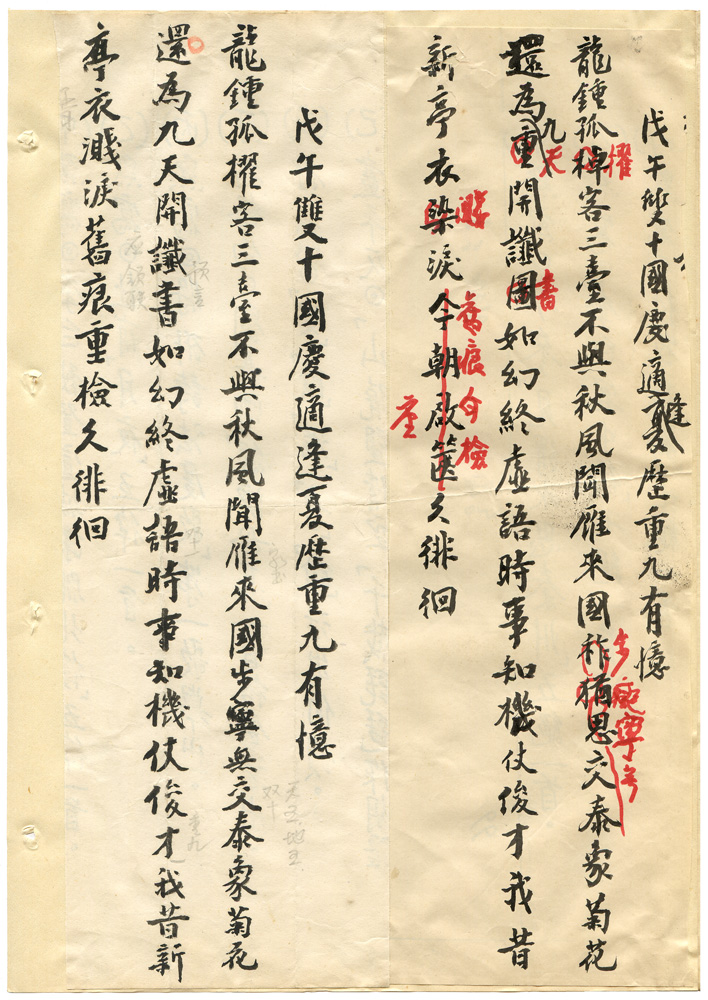 戊午雙十國慶適夏曆重九有憶
逢
龍鍾孤棹客三臺不與秋風聞雁來國祚猶思交泰象菊花
櫂
步
寧
還為重開讖圖如幻終虛語時事知機仗俊才我昔
九天
書
新亭衣染淚今朝啟篋久徘徊
濺
舊痕
檢
戊午雙十國慶適逢夏曆重九有憶
龍鍾孤櫂客三臺不與秋風聞雁來國步寧無交泰象菊花
還為九天開讖書如幻終虛語時事知機仗俊才我昔新
亭衣濺淚舊痕重檢久徘徊
重九
双十
天五地五